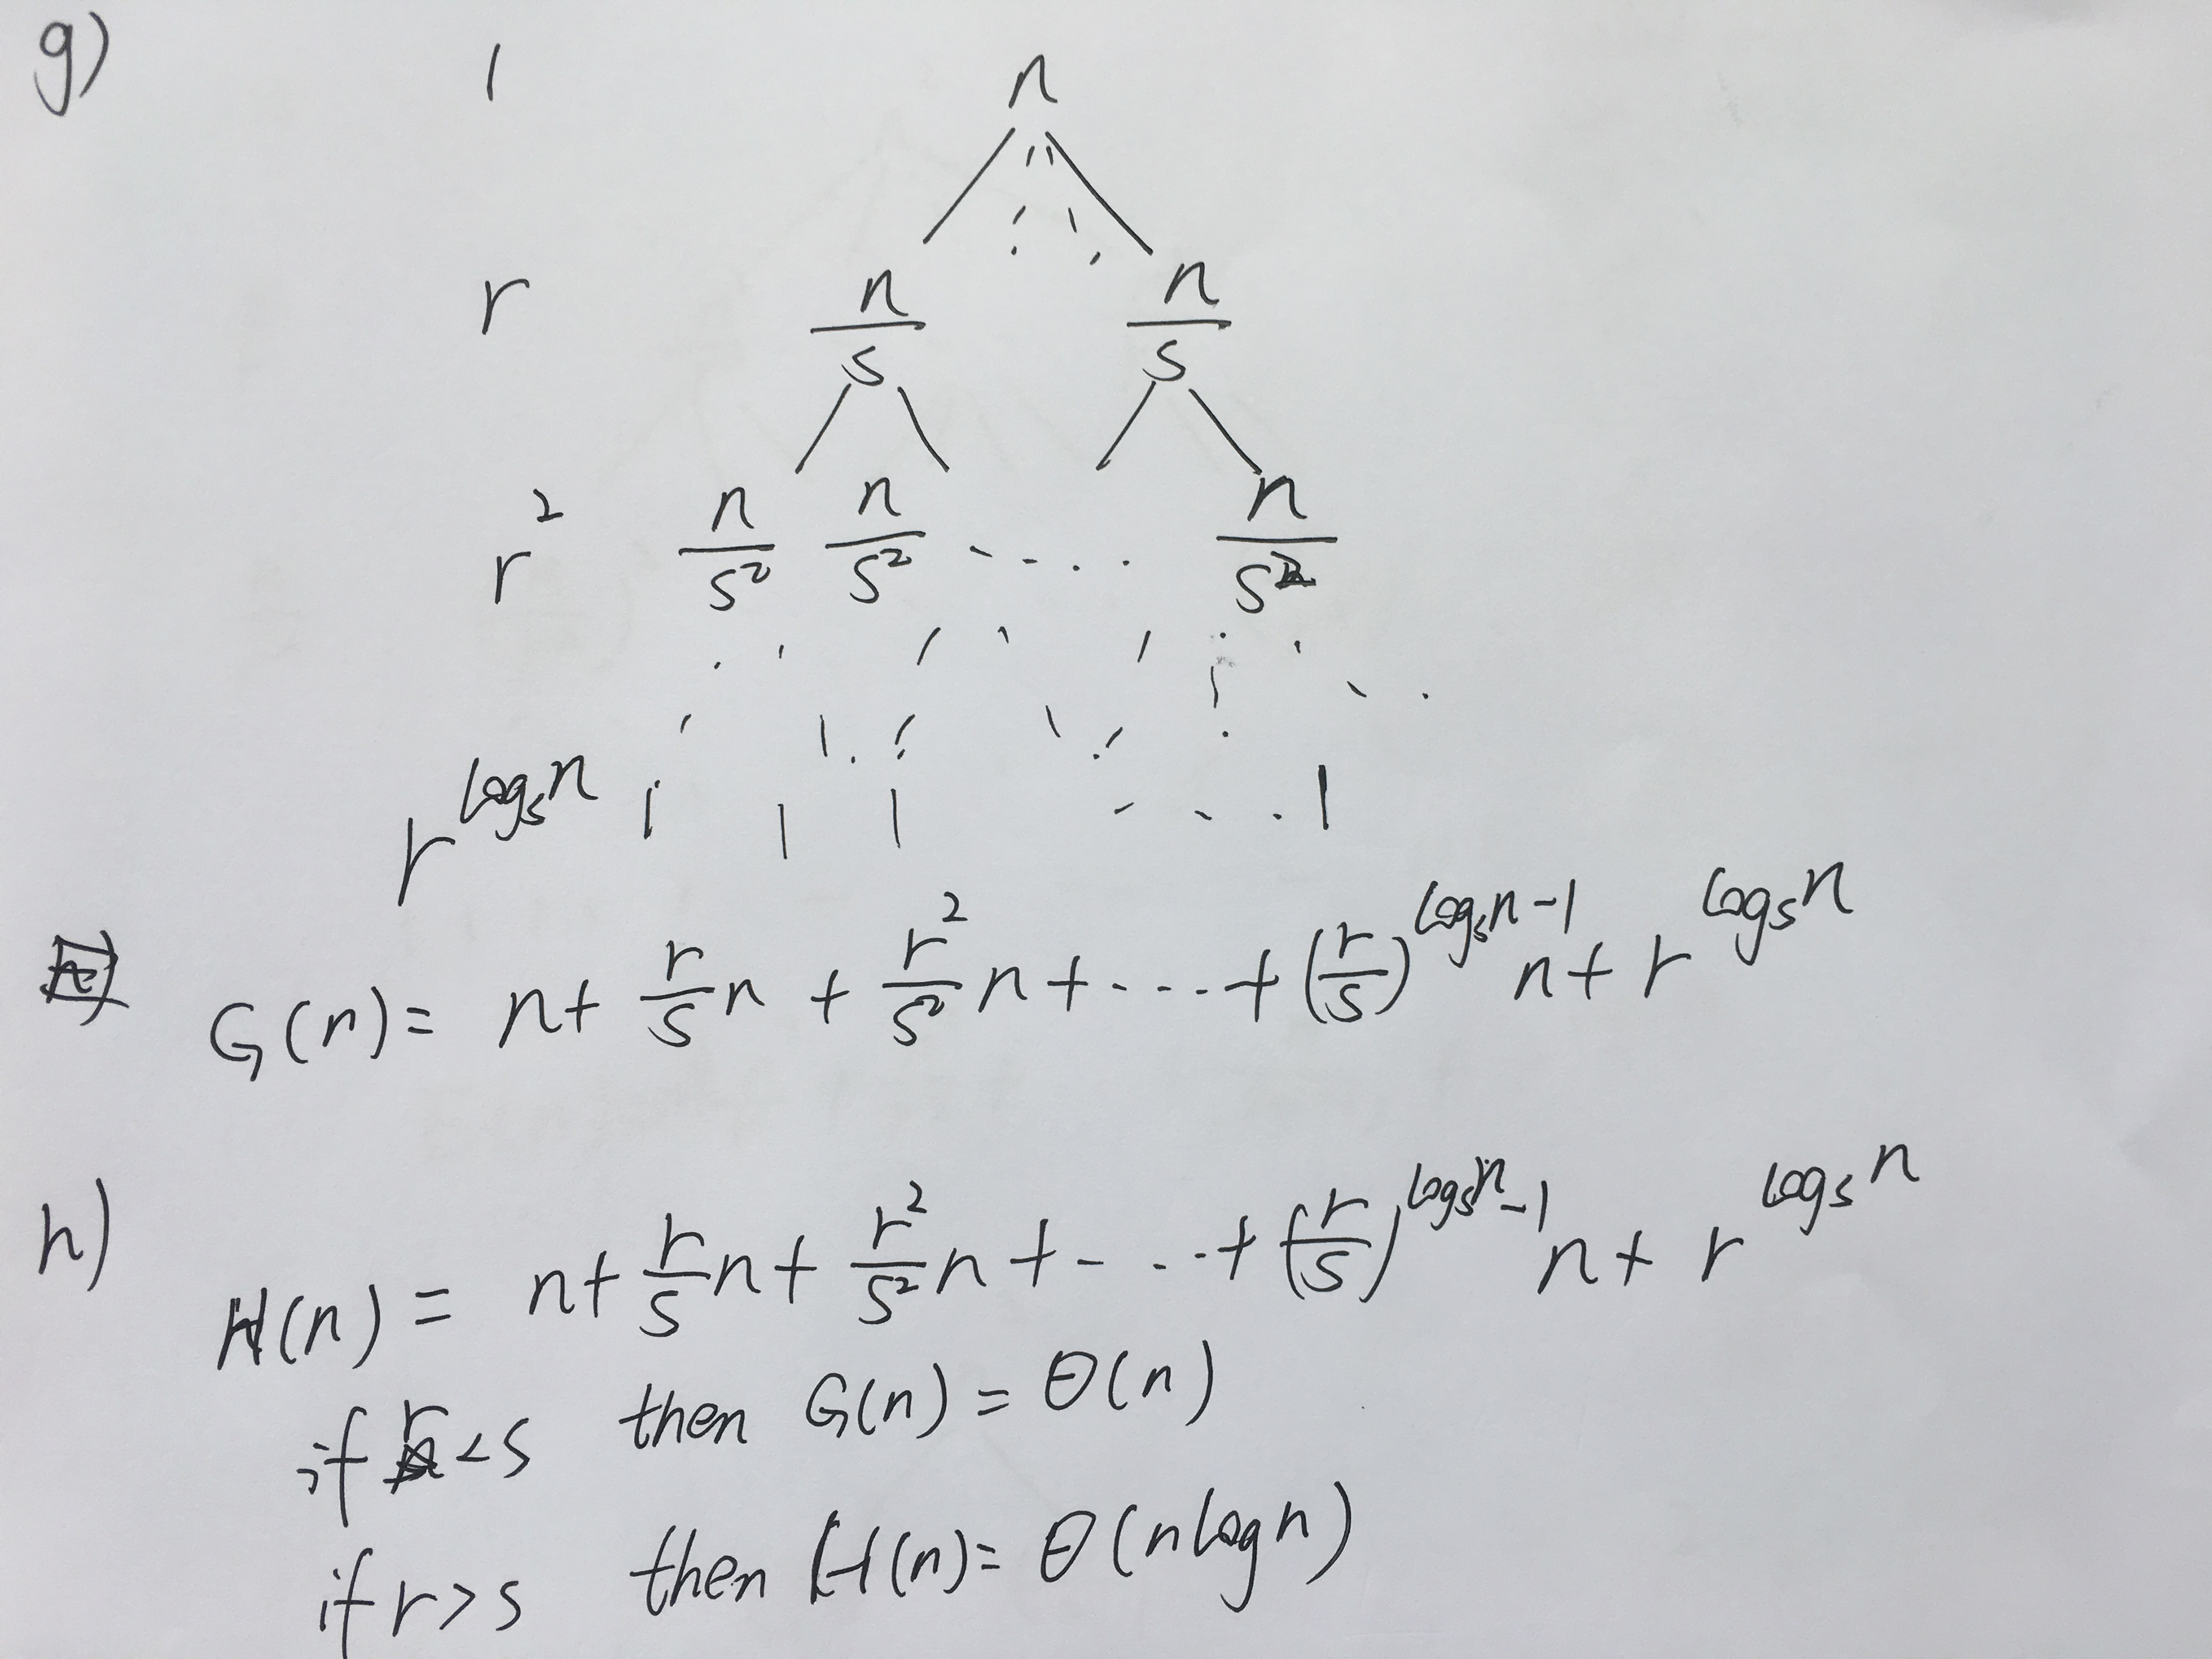 g)
1 n
r n/s n/s
r² n/s² n/s² ... n/s²
r^(log_s n) 1 1 1 ... 1
G(n) = n + r/s n + r²/s² n + .... + (r/s)^(log_s n - 1) n + r^(log_s n)
h)
H(n) = n + r/s n + r²/s² n + .... + (r/s)^(log_s n - 1) n + r^(log_s n)
if r < s then G(n) = θ(n)
if r > s then H(n) = θ(n log n)